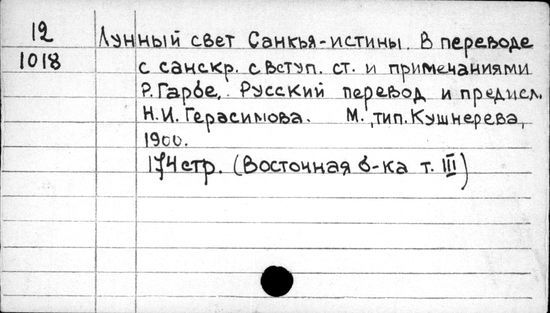 12
1018
Лунный свет Санкья-истины. В переводе
с санскр. с вступ. ст. и примечаниями
Р. Гарбе. Русский перевод и предисл.
Н.И. Герасимова. М., тип. Кушнерева,
1900.
174 стр. (Восточная б-ка т. III)